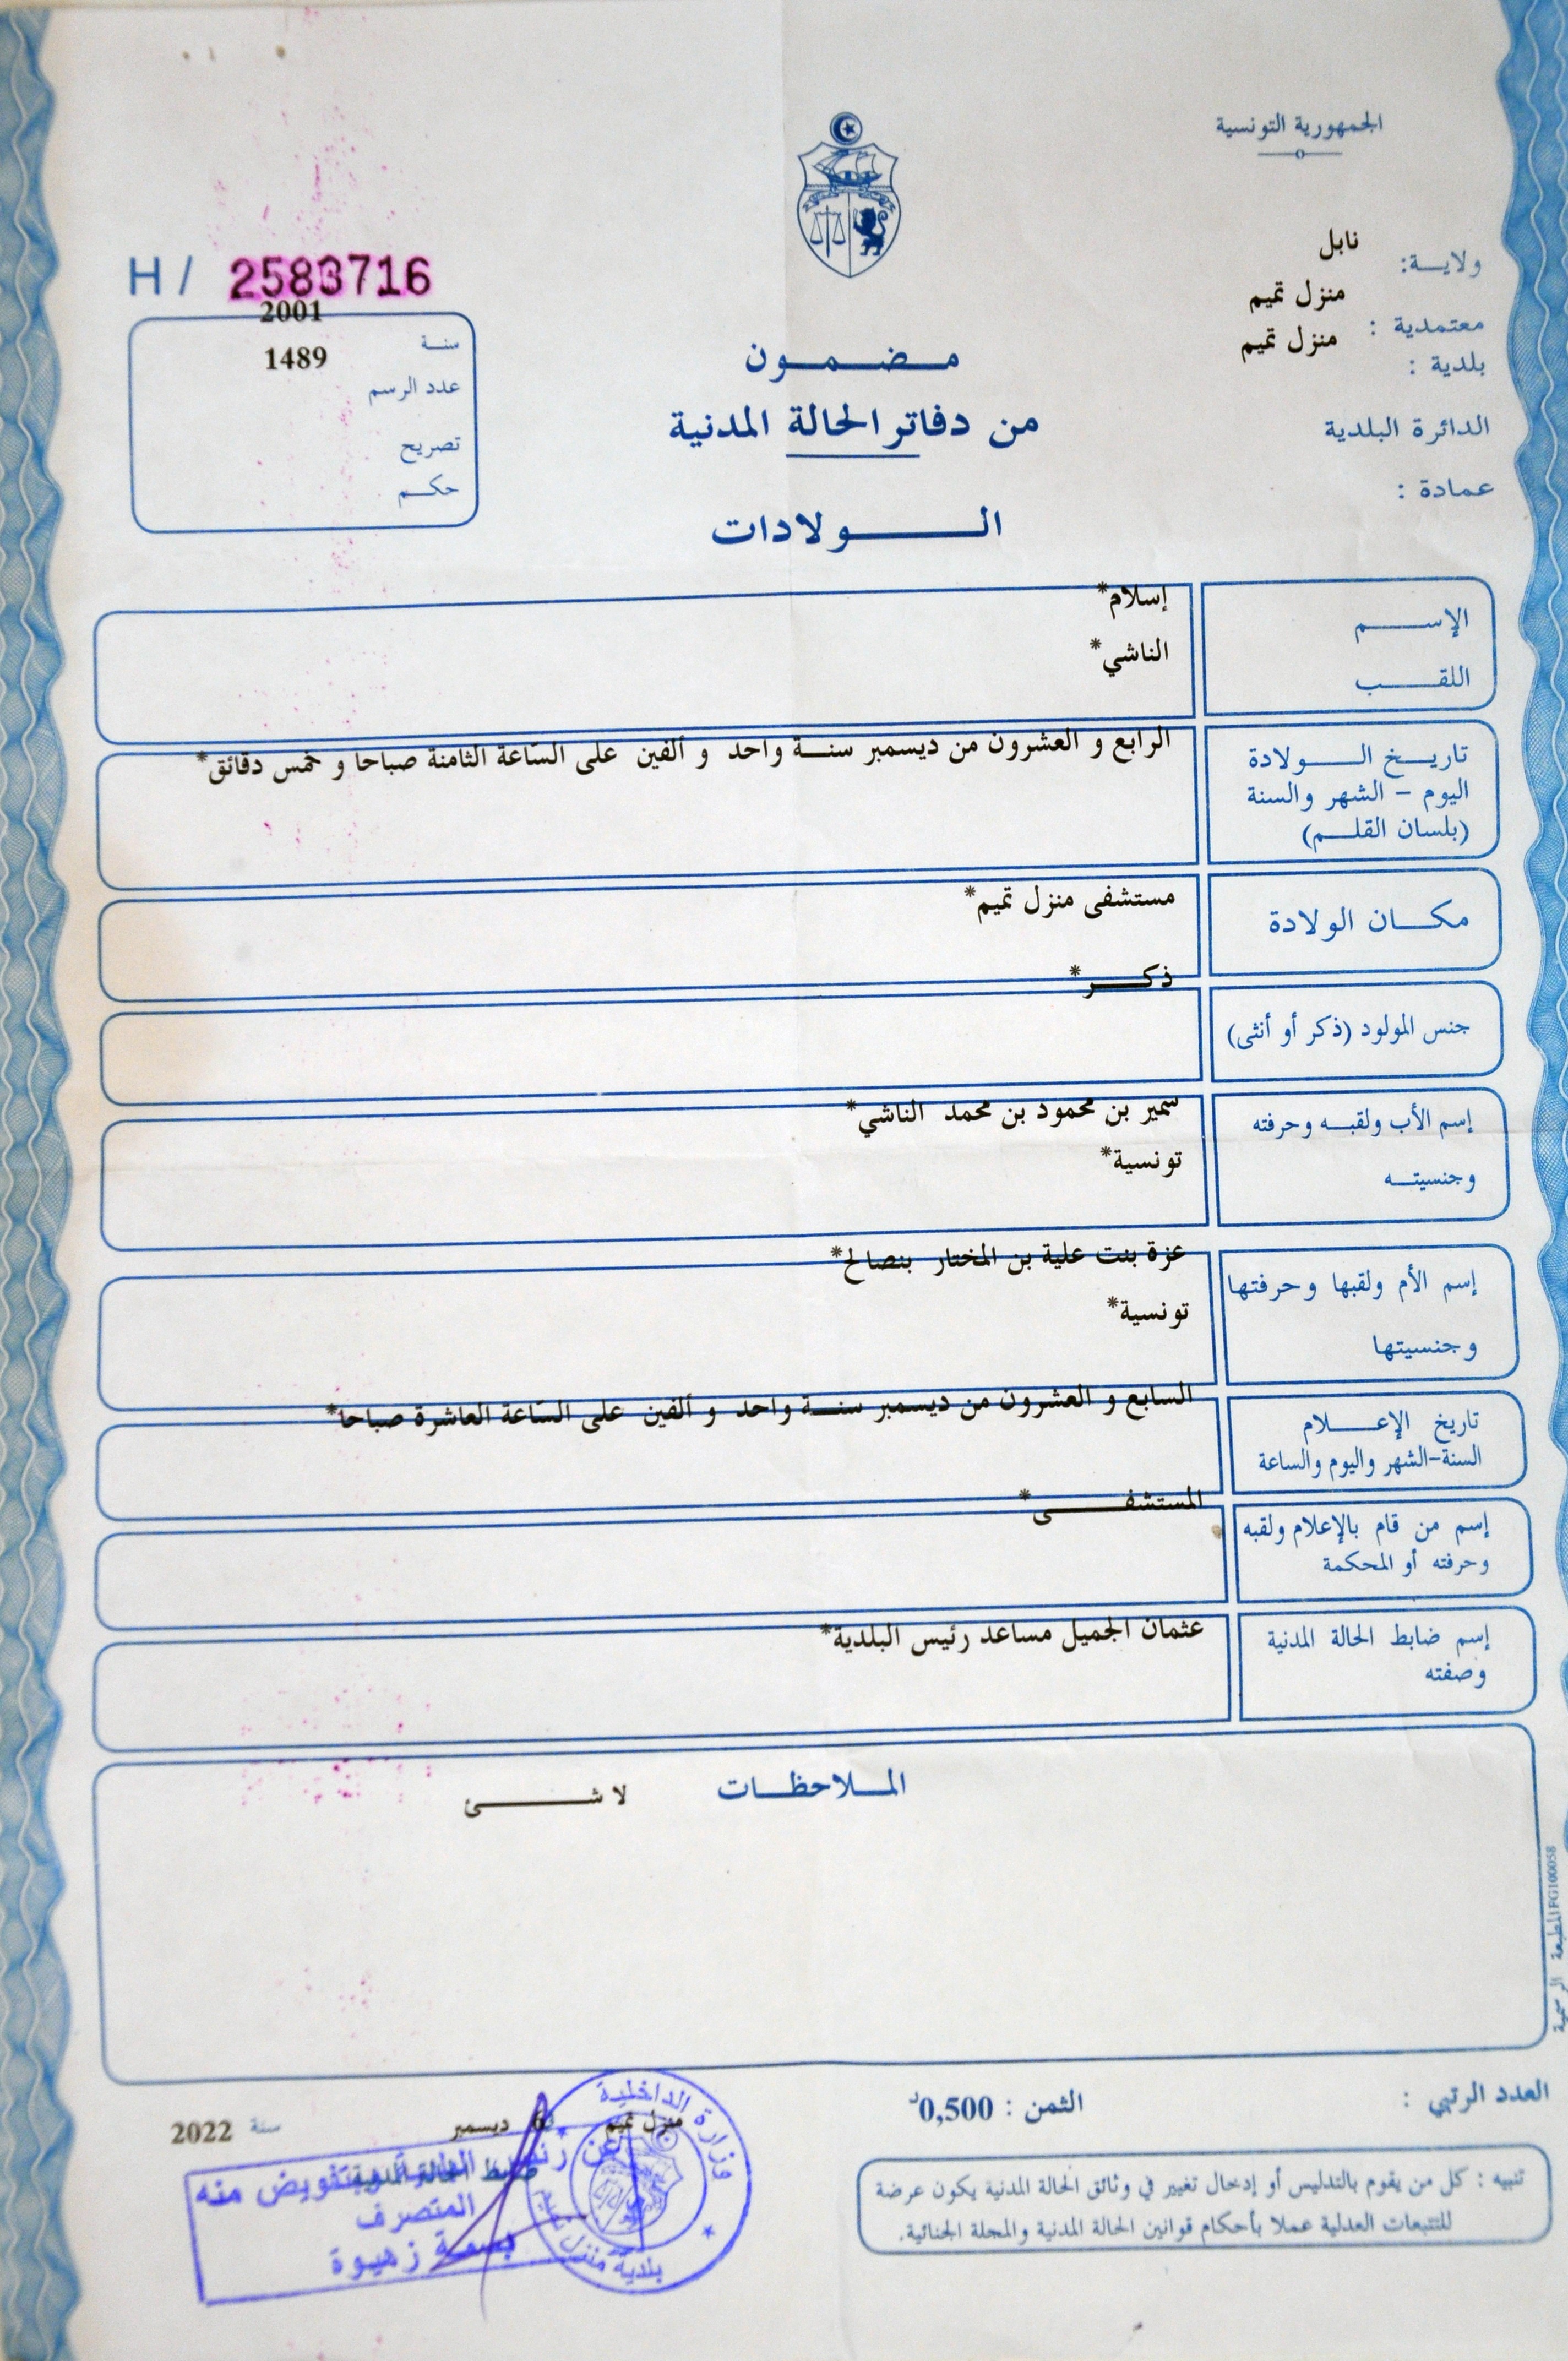 الجمهورية التونسية
ولاية: نابل
معتمدية : منزل تميم
بلدية : منزل تميم
الدائرة البلدية
عمادة :
H / 2583716
سنة 2001
عدد الرسم 1489
تصريح
حكم
مضمون
من دفاتر الحالة المدنية
الولادات
الإسم إسلام*
اللقب الناشي*
تاريخ الولادة
اليوم - الشهر والسنة
(بلسان القلم)
الرابع و العشرون من ديسمبر سنة واحد و ألفين على السّاعة الثامنة صباحا و خمس دقائق*
مكان الولادة
مستشفى منزل تميم*
جنس المولود (ذكر أو أنثى)
ذكر*
إسم الأب ولقبه وحرفته
وجنسيته
سمير بن محمود بن محمد الناشي*
تونسية*
إسم الأم ولقبها وحرفتها
وجنسيتها
عزة بنت علية بن المختار بنصالح*
تونسية*
تاريخ الإعلام
السنة-الشهر واليوم والساعة
السابع و العشرون من ديسمبر سنة واحد و ألفين على السّاعة العاشرة صباحا*
إسم من قام بالإعلام ولقبه
وحرفته أو المحكمة
المستشفى*
إسم ضابط الحالة المدنية
وصفته
عثمان الجميل مساعد رئيس البلدية*
الملاحظات
لا شئ
المطبعة الرسمية FG100058
العدد الرتبي :
الثمن : 0,500د
تنبيه : كل من يقوم بالتدليس أو إدخال تغيير في وثائق الحالة المدنية يكون عرضة
للتتبعات العدلية عملا بأحكام قوانين الحالة المدنية والمجلة الجنائية.
منزل تميم 6 ديسمبر سنة 2022
ضابط الحالة المدنية
وبتفويض منه
المتصرف
بسمة زهيوة
وزارة الداخلية
بلدية منزل تميم